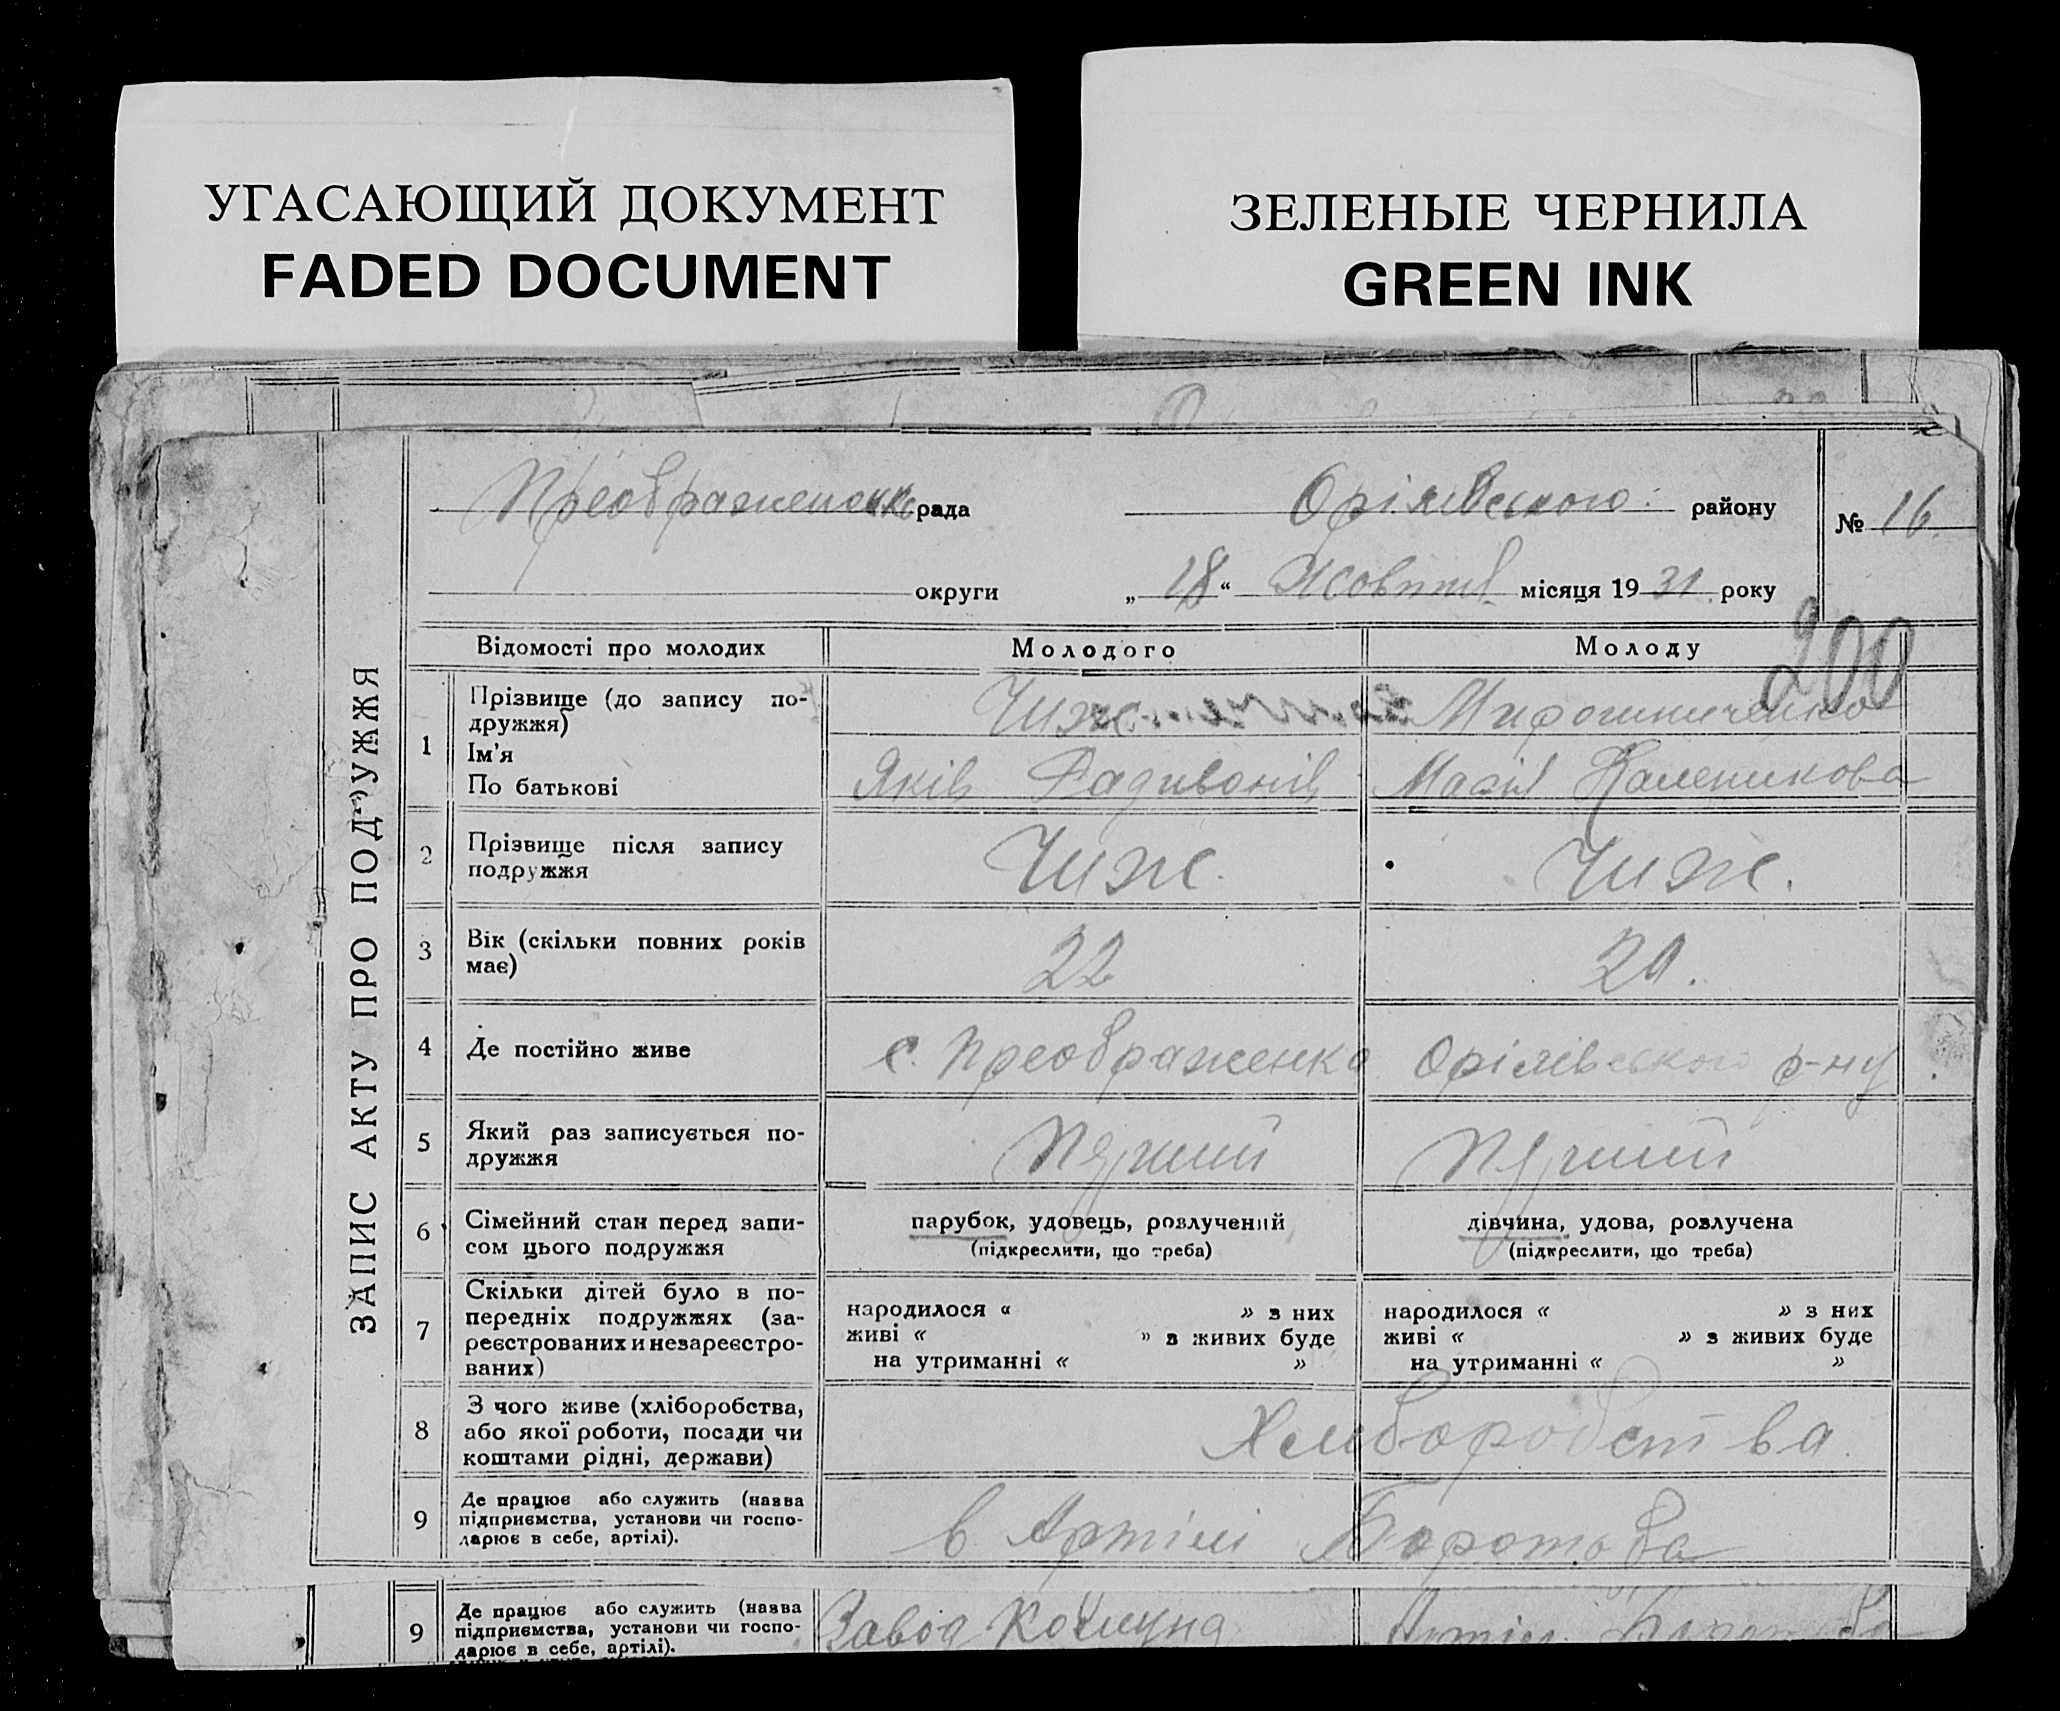 УГАСАЮЩИЙ ДОКУМЕНТ
FADED DOCUMENT
ЗЕЛЕНЫЕ ЧЕРНИЛА
GREEN INK
ЗАПИС АКТУ ПРО ПОДРУЖЖЯ
Преображенськ рада Орілівського району № 16.
округи „ 18 “ Жовтня місяця 19 31 року
200
Відомості про молодих Молодого Молоду
1 Прізвище (до запису по-
дружжя) Чиж Мирошниченко
Ім'я
По батькові Яків Радивонів Марія Каленикова
2 Прізвище після запису
подружжя Чиж. Чиж.
3 Вік (скільки повних років
має) 22 20.
4 Де постійно живе с. Преображенка Орілівського р-ну
5 Який раз записується по-
дружжя Перший Перший
6 Сімейний стан перед запи-
сом цього подружжя
парубок, удовець, розлучений
(підкреслити, що треба)
дівчина, удова, розлучена
(підкреслити, що треба)
7 Скільки дітей було в по-
передніх подружжях (за-
реєстрованих и незареєстро-
ваних)
народилося “ ” з них
живі “ ” з живих буде
на утриманні “ ”
народилося “ ” з них
живі “ ” з живих буде
на утриманні “ ”
8 З чого живе (хліборобства,
або якої роботи, посади чи
коштами рідні, держави) Хлиборобства
9 Де працює або служить (назва
підприємства, установи чи госпо-
дарює в себе, артілі). в Артілі Боротьба
9 Де працює або служить (назва
підприємства, установи чи госпо-
дарює в себе, артілі). Завод Комуна Артілі Боротьба